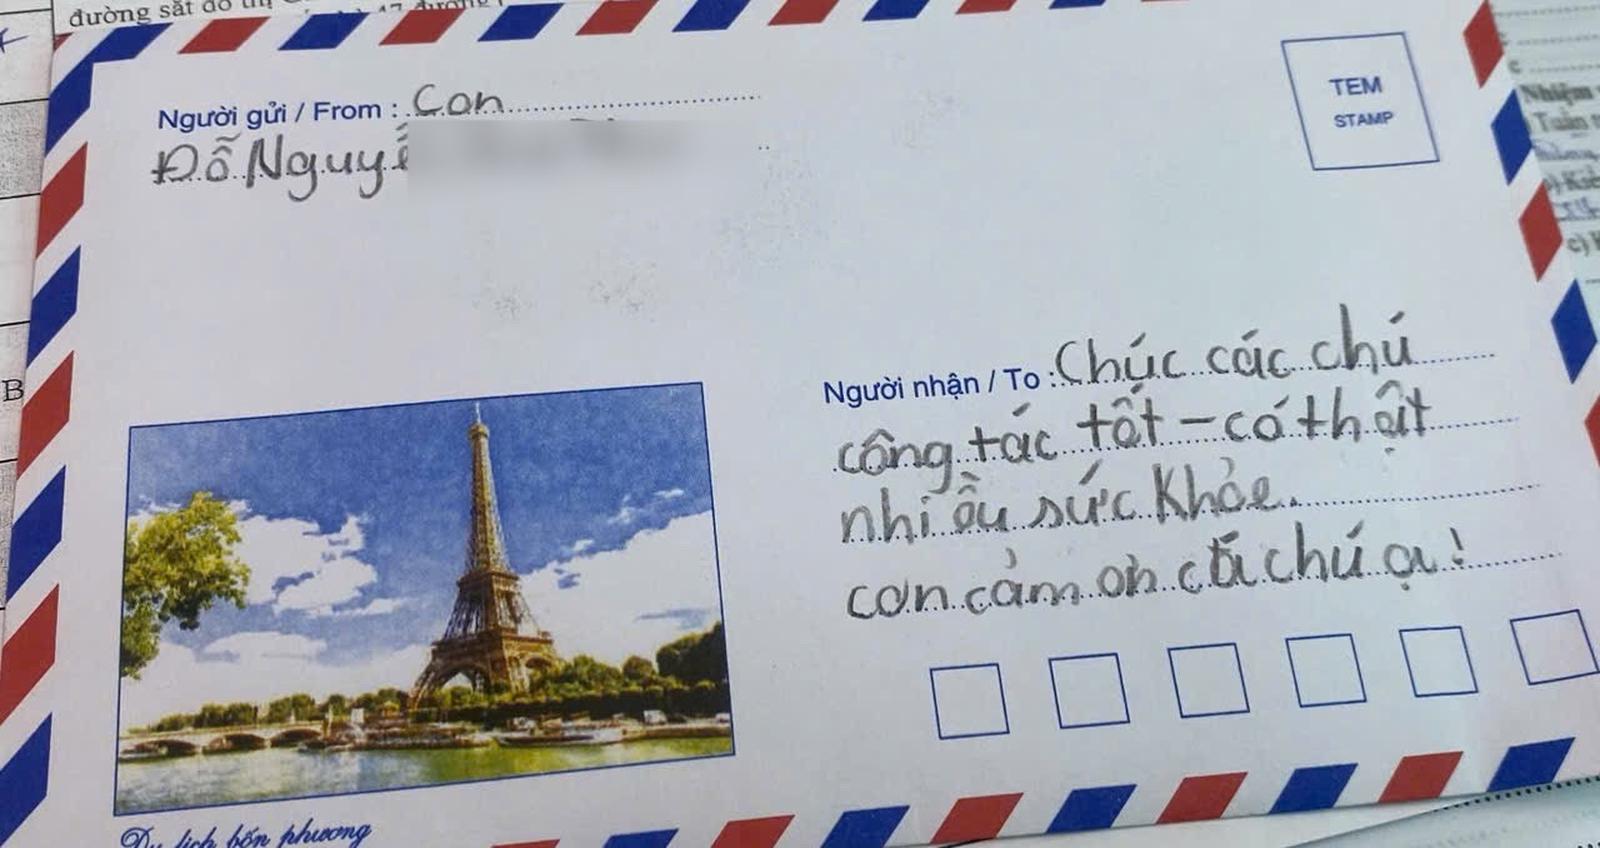 đường sắt đô thị
Người gửi / From : Con
Đỗ Nguyễ
TEM
STAMP
Người nhận / To : Chúc các chú
công tác tốt – có thật
nhiều sức khỏe.
con cảm ơn các chú ạ!
Du lịch bốn phương
B
Nhiệm
Tuần